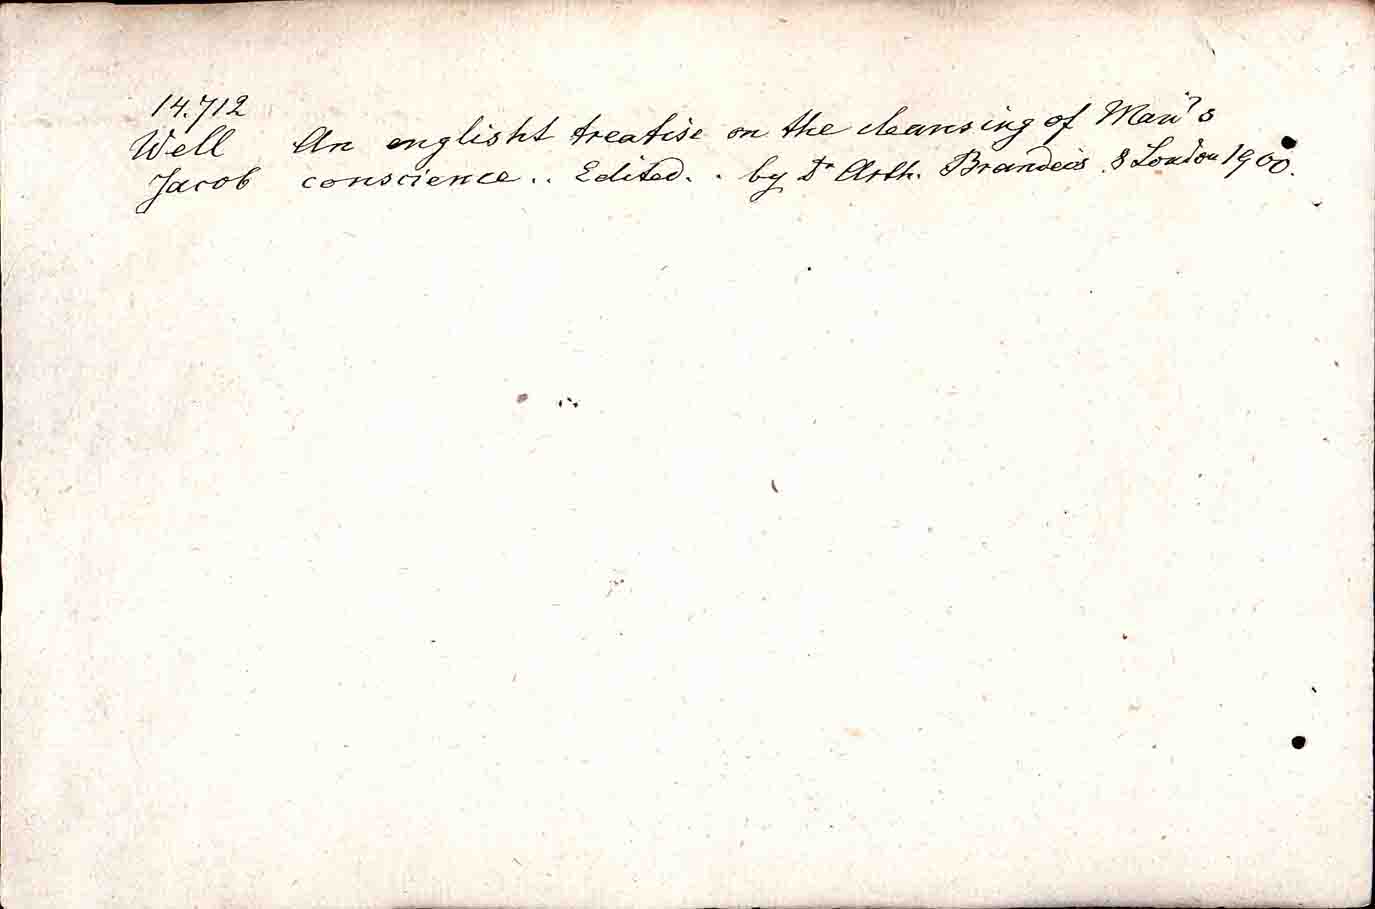 14.712
Well An englisht treatise on the cleansing of Man's
Jacob conscience .. Edited. . by Dr Arth. Brandeis. 8 London 1900.